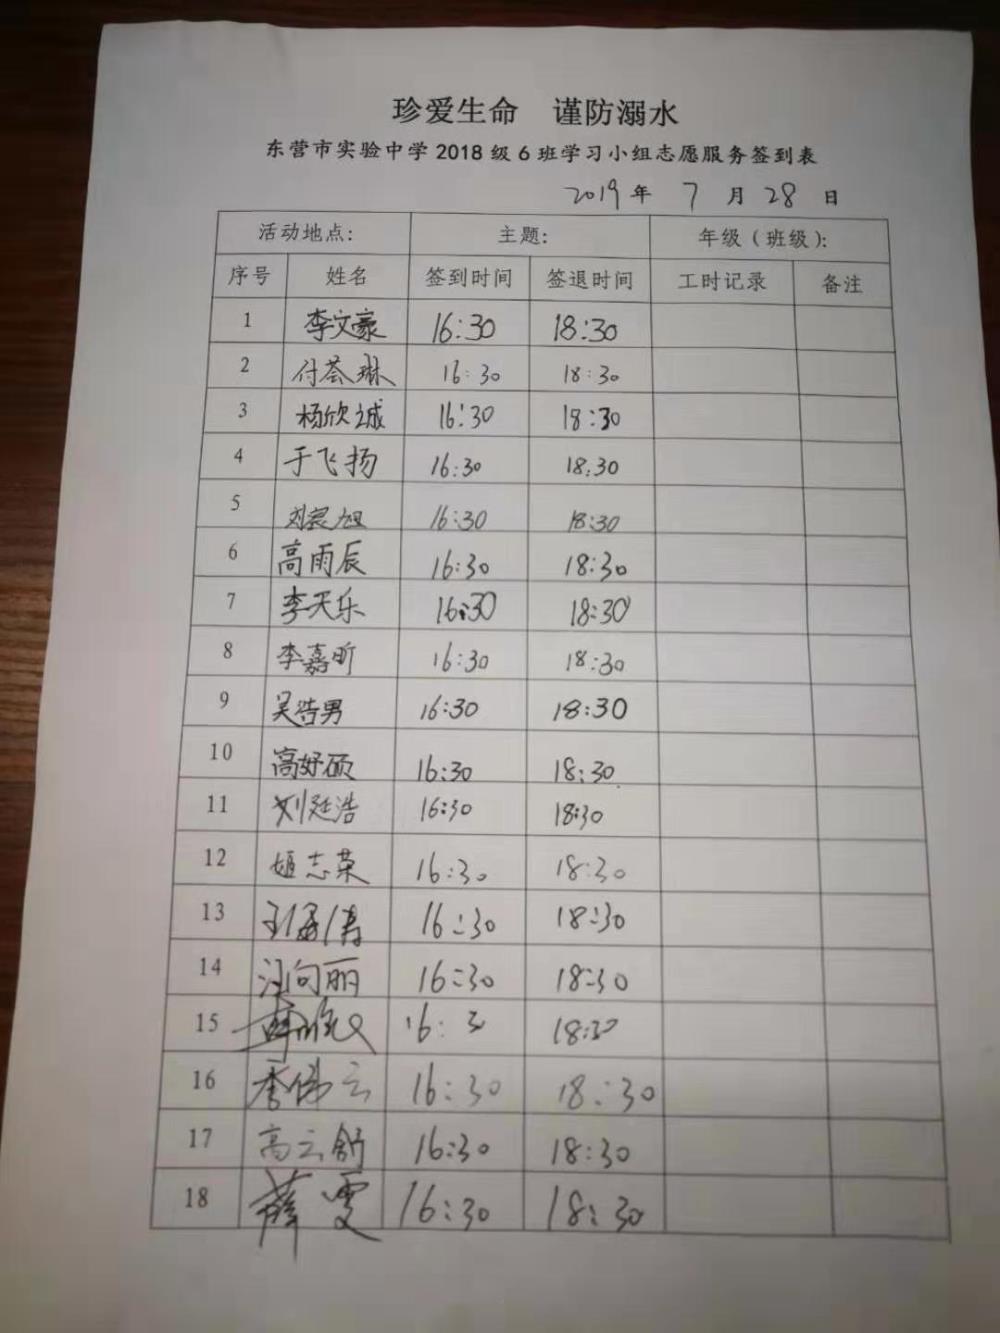 珍爱生命 谨防溺水
东营市实验中学2018级6班学习小组志愿服务签到表
2019年 7月28日
活动地点: 主题: 年级（班级）:
序号 姓名 签到时间 签退时间 工时记录 备注
1 李文豪 16:30 18:30
2 付荟琳 16:30 18:30
3 杨欣诚 16:30 18:30
4 于飞扬 16:30 18:30
5 16:30 18:30
6 高雨辰 16:30 18:30
7 李天乐 16:30 18:30
8 李嘉昕 16:30 18:30
9 吴浩男 16:30 18:30
10 高妤硕 16:30 18:30
11 刘廷浩 16:30 18:30
12 姬志荣 16:30 18:30
13 16:30 18:30
14 汪向丽 16:30 18:30
15 16:3 18:30
16 16:30 18:30
17 高云舒 16:30 18:30
18 薛雯 16:30 18:30